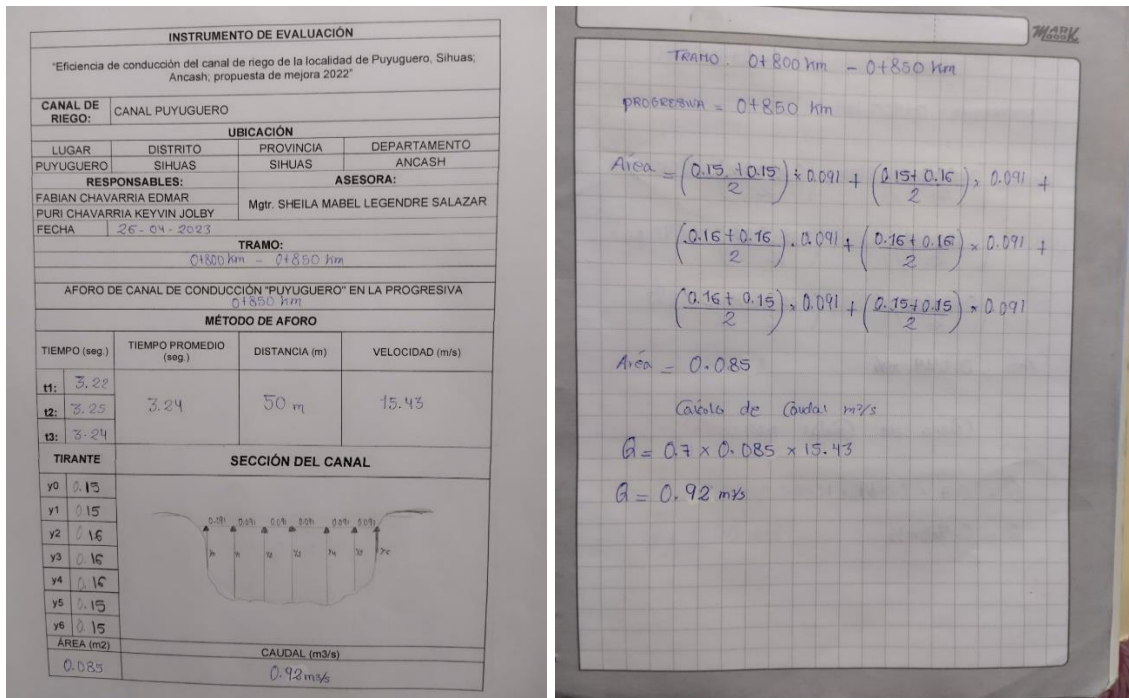 INSTRUMENTO DE EVALUACIÓN
"Eficiencia de conducción del canal de riego de la localidad de Puyuguero, Sihuas;
Ancash; propuesta de mejora 2022"
CANAL DE RIEGO: CANAL PUYUGUERO
UBICACIÓN
LUGAR DISTRITO PROVINCIA DEPARTAMENTO
PUYUGUERO SIHUAS SIHUAS ANCASH
RESPONSABLES: ASESORA:
FABIAN CHAVARRIA EDMAR
PURI CHAVARRIA KEYVIN JOLBY
Mgtr. SHEILA MABEL LEGENDRE SALAZAR
FECHA 26-04-2023
TRAMO:
0+800 km - 0+850 km
AFORO DE CANAL DE CONDUCCIÓN "PUYUGUERO" EN LA PROGRESIVA
0+850 km
MÉTODO DE AFORO
TIEMPO (seg.) TIEMPO PROMEDIO (seg.) DISTANCIA (m) VELOCIDAD (m/s)
t1: 3.22
t2: 3.25 3.24 50 m 15.43
t3: 3.24
TIRANTE SECCIÓN DEL CANAL
y0 0.15
y1 0.15
y2 0.16
y3 0.16
y4 0.16
y5 0.15
y6 0.15
0.091 0.091 0.091 0.091 0.091 0.091
ÁREA (m2) CAUDAL (m3/s)
0.085 0.92 m3/s
TRAMO 0+800 km - 0+850 km
PROGRESIVA = 0+850 km
Area = (0.15 + 0.15 / 2) × 0.091 + (0.15 + 0.16 / 2) × 0.091 +
(0.16 + 0.16 / 2) × 0.091 + (0.16 + 0.16 / 2) × 0.091 +
(0.16 + 0.15 / 2) × 0.091 + (0.15 + 0.15 / 2) × 0.091
Area = 0.085
Calculo de Caudal m3/s
Q = 0.7 × 0.085 × 15.43
Q = 0.92 m3/s